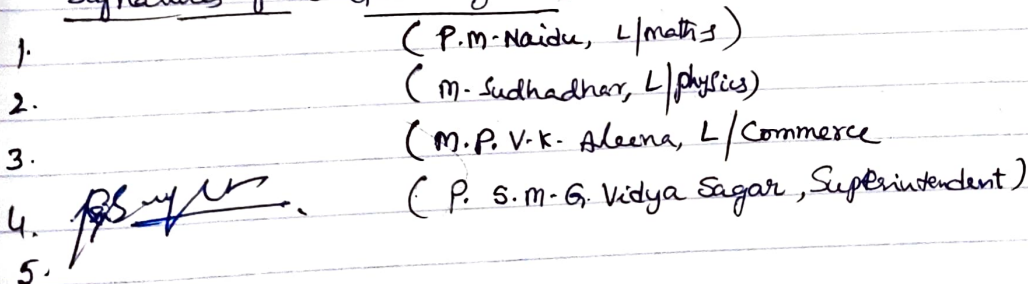 Signatures
1. ( P.M. Naidu, L/maths )
2. ( M. Sudhadhar, L/physics )
3. ( M.P. V.K. Aleena, L/Commerce
4. ( P. S.M.G. Vidya Sagar, Superintendent )
5.